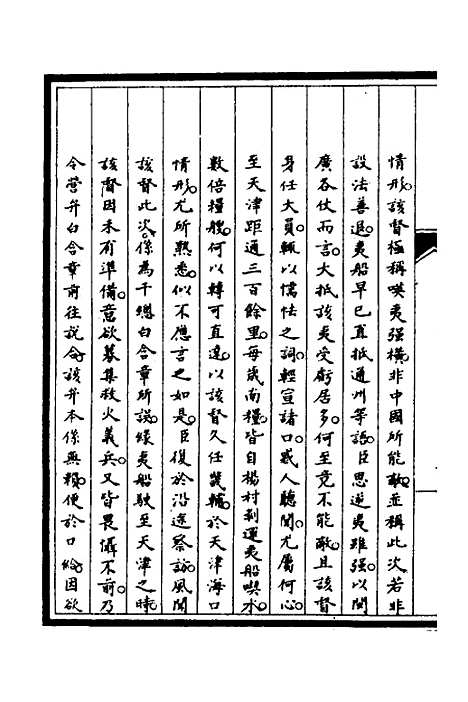 情形。該督極稱㗸夷强横。非中國所能敵。並稱此次若非
設法善退。夷船早已直抵通州等語。臣思逆夷雖强。以閩
廣各仗而言。大抵該夷受虧居多。何至竟不能敵。且該督
身任大員。輒以懦怯之詞。輕宣諸口。惑人聽聞。尤屬何心。
至天津距通三百餘里。每歲南糧。皆自楊村剝運。夷船喫水
數倍糧艘。何以轉可直達。以該督久任畿輔。於天津海口
情形。尤所熟悉。似不應言之如是。臣復於沿途察訪。風聞
該督此次。係為千總白含章所誤。緣夷船駛至天津之時。
該督因未有準備。意欲募集救火義兵。又皆畏懾不前。乃
令營弁白含章前往說合。該弁本係無賴。便於口給。因欲